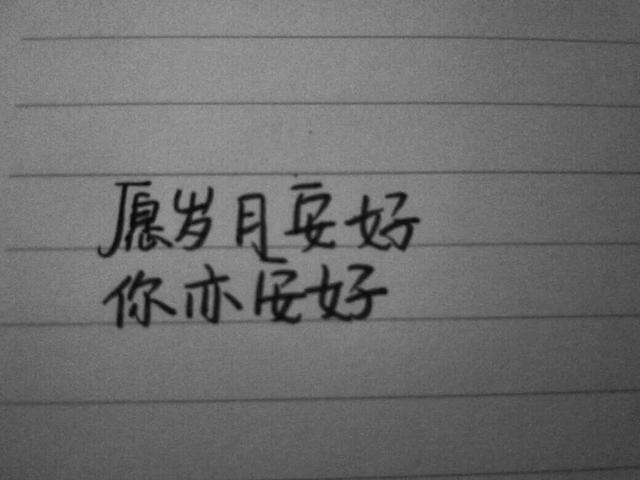 愿岁月安好
你亦安好